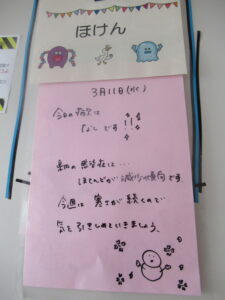 ほけん
3月11日(水)
今日の病欠は
「なし」です!!
県内の感染症は…
ほとんどが減少傾向です。
今週は寒さが続くので
気を引きしめていきましょう。